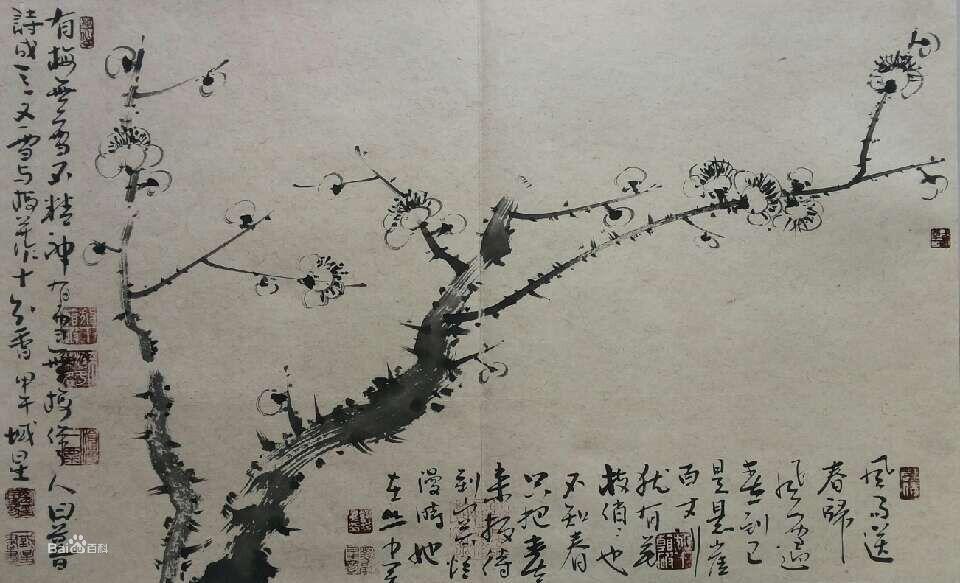 風雨送
春歸
飛雪迎
春到已
是悬崖
百丈冰
犹有花
枝俏俏也
不争春
只把春
来报待
到山花烂
漫時她
在丛中笑
有梅無雪不精神有雪無梅俗人日暮
詩成天又雪与梅并作十分香 甲午 城星
Bai百科